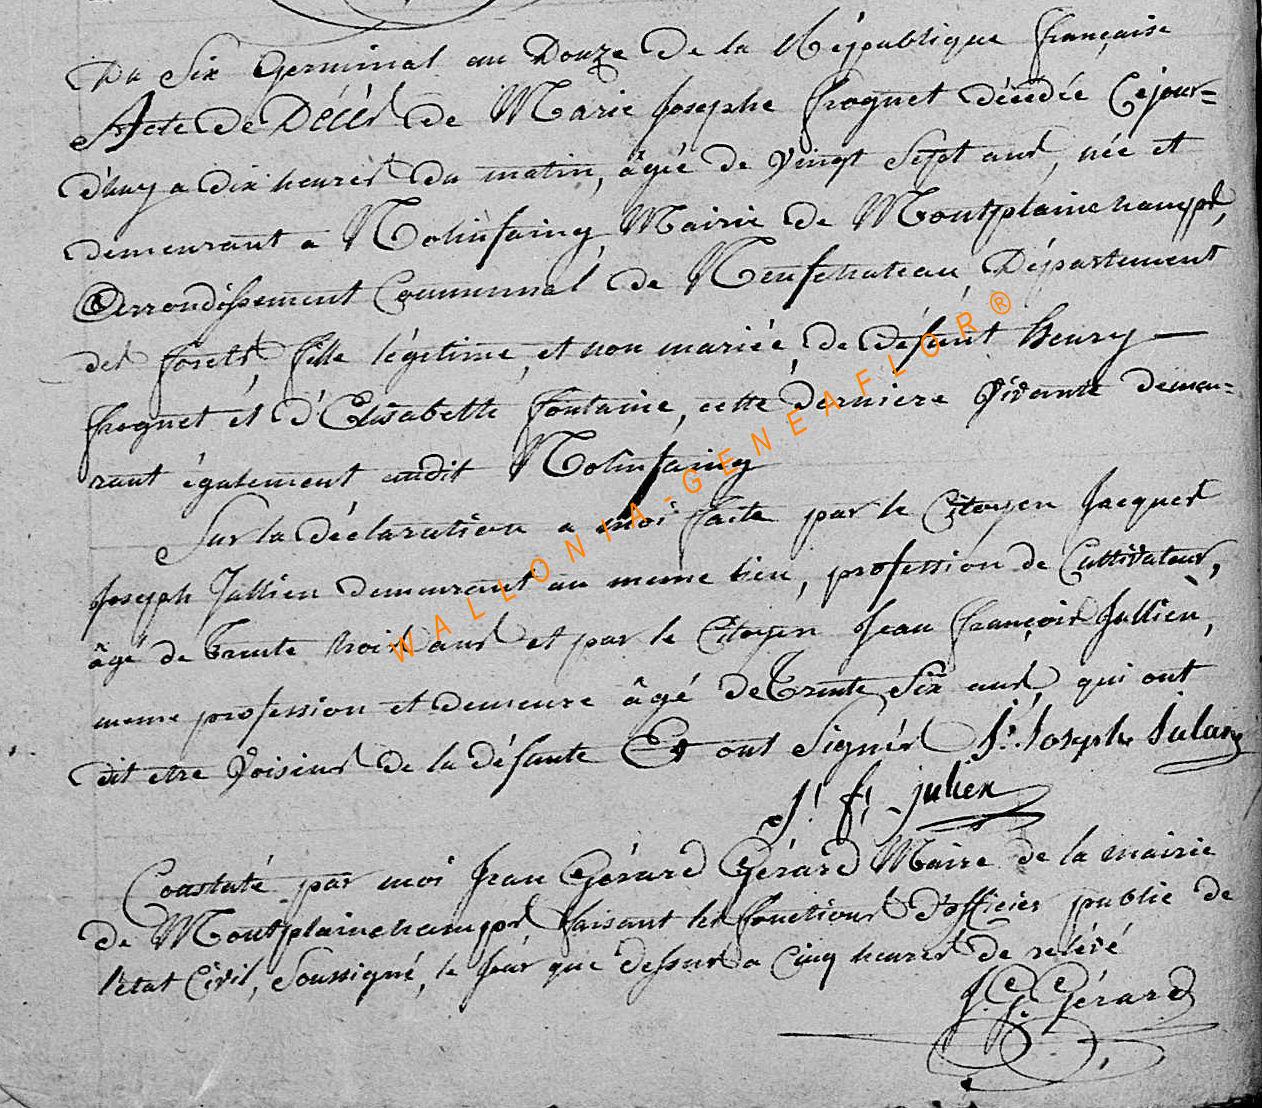 Du Six Germinal an Douze de la République française
Acte de Décès de Marie Josephe frognet décédée Cejour=
d'huy a dix heures du matin, âgée de vingt Sept ans, née et
demeurant a Molinfaing, Mairie de Montplainchamps,
arrondissement Communal de Neufchateau, Département
des forêts, fille légitime, et non mariée, de défunt henry —
frognet et d'Elisabette fontaine, cette derniere vivante demeu=
rant également audit Molinfaing
Sur la déclaration a moi faite par le Citoyen Jacques
Joseph Jullien demeurant au meme lieu, profession de Cultivateur,
âgé de trente trois ans et par le Citoyen Jean françois Jullien,
meme profession et demeure âgé de trente Six ans, qui ont
dit etre voisins de la défunte Et ont Signés J: Joseph
J: f: julien
Constaté par moi Jean Gérard Gérard Maire de la mairie
de Montplainchamps faisant les fonctions d'officier public de
l'état Civil, Soussigné, le jour que dessus a Cinq heures de relevé
J. G. Gérard
WALLONIA-GENEAFLOR®